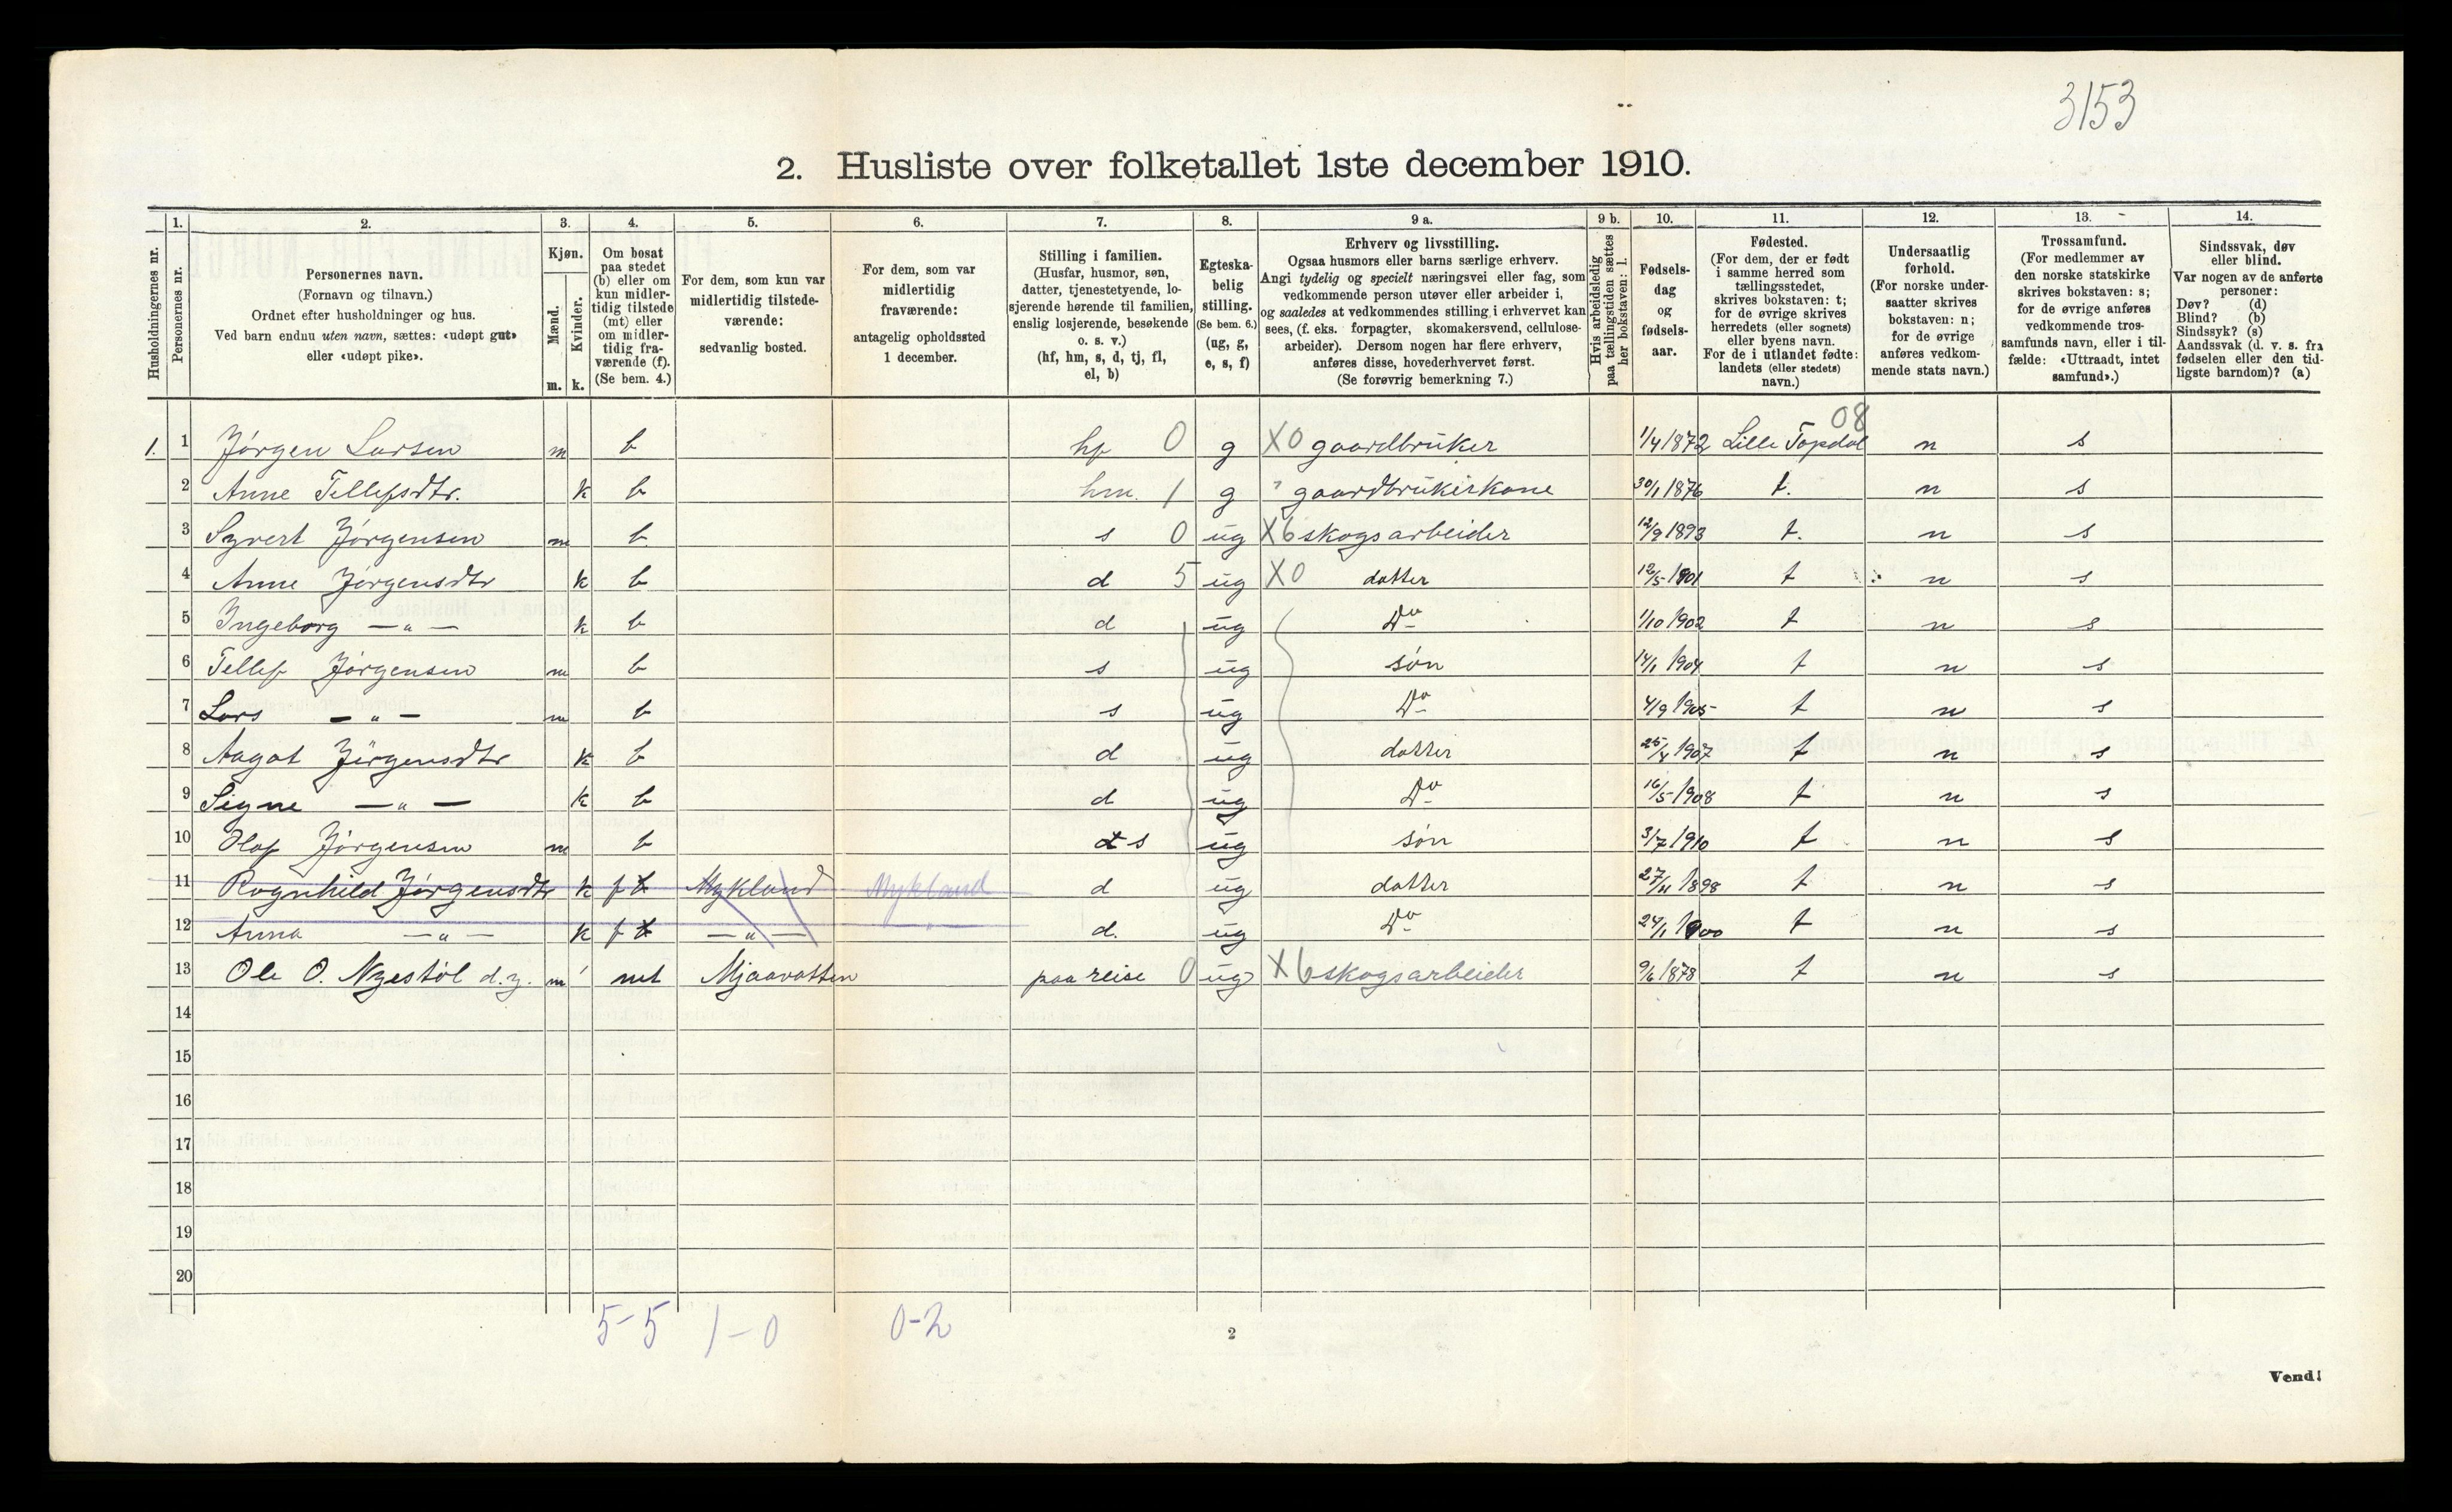 3153
2. Husliste over folketallet 1ste december 1910.
Husholdningernes nr.
1.
Personernes nr.
2.
Personernes navn.
(Fornavn og tilnavn.)
Ordnet efter husholdninger og hus.
Ved barn endnu uten navn, sættes: «udøpt gut»
eller «udøpt pike».
3.
Kjøn.
Mænd.
Kvinder.
m. k.
4.
Om bosat
paa stedet
(b) eller om
kun midler-
tidig tilstede
(mt) eller
om midler-
tidig fra-
værende (f).
(Se bem. 4.)
5.
For dem, som kun var
midlertidig tilstede-
værende:
sedvanlig bosted.
6.
For dem, som var
midlertidig
fraværende:
antagelig opholdssted
1 december.
7.
Stilling i familien.
(Husfar, husmor, søn,
datter, tjenestetyende, lo-
sjerende hørende til familien,
enslig losjerende, besøkende
o. s. v.)
(hf, hm, s, d, tj, fl,
el, b)
8.
Egteska-
belig
stilling.
(Se bem. 6.)
(ug, g,
e, s, f)
9 a.
Erhverv og livsstilling.
Ogsaa husmors eller barns særlige erhverv.
Angi tydelig og specielt næringsvei eller fag, som
vedkommende person utøver eller arbeider i,
og saaledes at vedkommendes stilling i erhvervet kan
sees, (f. eks. forpagter, skomakersvend, cellulose-
arbeider). Dersom nogen har flere erhverv,
anføres disse, hovederhvervet først.
(Se forøvrig bemerkning 7.)
9 b.
Hvis arbeidsledig
paa tællingstiden sættes
her bokstaven: l.
10.
Fødsels-
dag
og
fødsels-
aar.
11.
Fødested.
(For dem, der er født
i samme herred som
tællingsstedet,
skrives bokstaven: t;
for de øvrige skrives
herredets (eller sognets)
eller byens navn.
For de i utlandet fødte:
landets (eller stedets)
navn.)
12.
Undersaatlig
forhold.
(For norske under-
saatter skrives
bokstaven: n;
for de øvrige
anføres vedkom-
mende stats navn.)
13.
Trossamfund.
(For medlemmer av
den norske statskirke
skrives bokstaven: s;
for de øvrige anføres
vedkommende tros-
samfunds navn, eller i til-
fælde: «Uttraadt, intet
samfund».)
14.
Sindssvak, døv
eller blind.
Var nogen av de anførte
personer:
Døv? (d)
Blind? (b)
Sindssyk? (s)
Aandssvak (d. v. s. fra
fødselen eller den tid-
ligste barndom)? (a)
08
1. 1 Jørgen Larsen m b hf 0 g X0 gaardbruker 1/4 1872 Lille Topdal n s
2 Anne Tellefsdtr. k b hm. 1 g " gaardbrukerkone 30/1 1876 t. n s
3 Syvert Jørgensen m b s 0 ug X6 skogsarbeider 12/9 1893 t. n s
4 Anne Jørgensdtr k b d 5 ug X0 datter 12/5 1901 t n s
5 Ingeborg — " — k b d ug Do 1/10 1902 t n s
6 Tellef Jørgensen m b s ug søn 14/1 1904 t n s
7 Lars — " — m b s ug Do 4/9 1905 t n s
8 Aagot Jørgensdtr k b d ug datter 25/4 1907 t n s
9 Signe — " — k b d ug Do 16/5 1908 t n s
10 Olaf Jørgensen m b d s ug søn 3/7 1910 t n s
11 Ragnhild Jørgensdtr k f b Mykland Mykland d ug datter 27/11 1898 t n s
12 Anna — " — k f — " — " d. ug Do 24/1 1900 t n s
13 Ole O. Nyestøl d.y. m mt Mjaavatten paa reise 0 ug X6 skogsarbeider 9/6 1878 t n s
14
15
16
17
18
19
20
5-5 1-0 0-2
2
Vend!